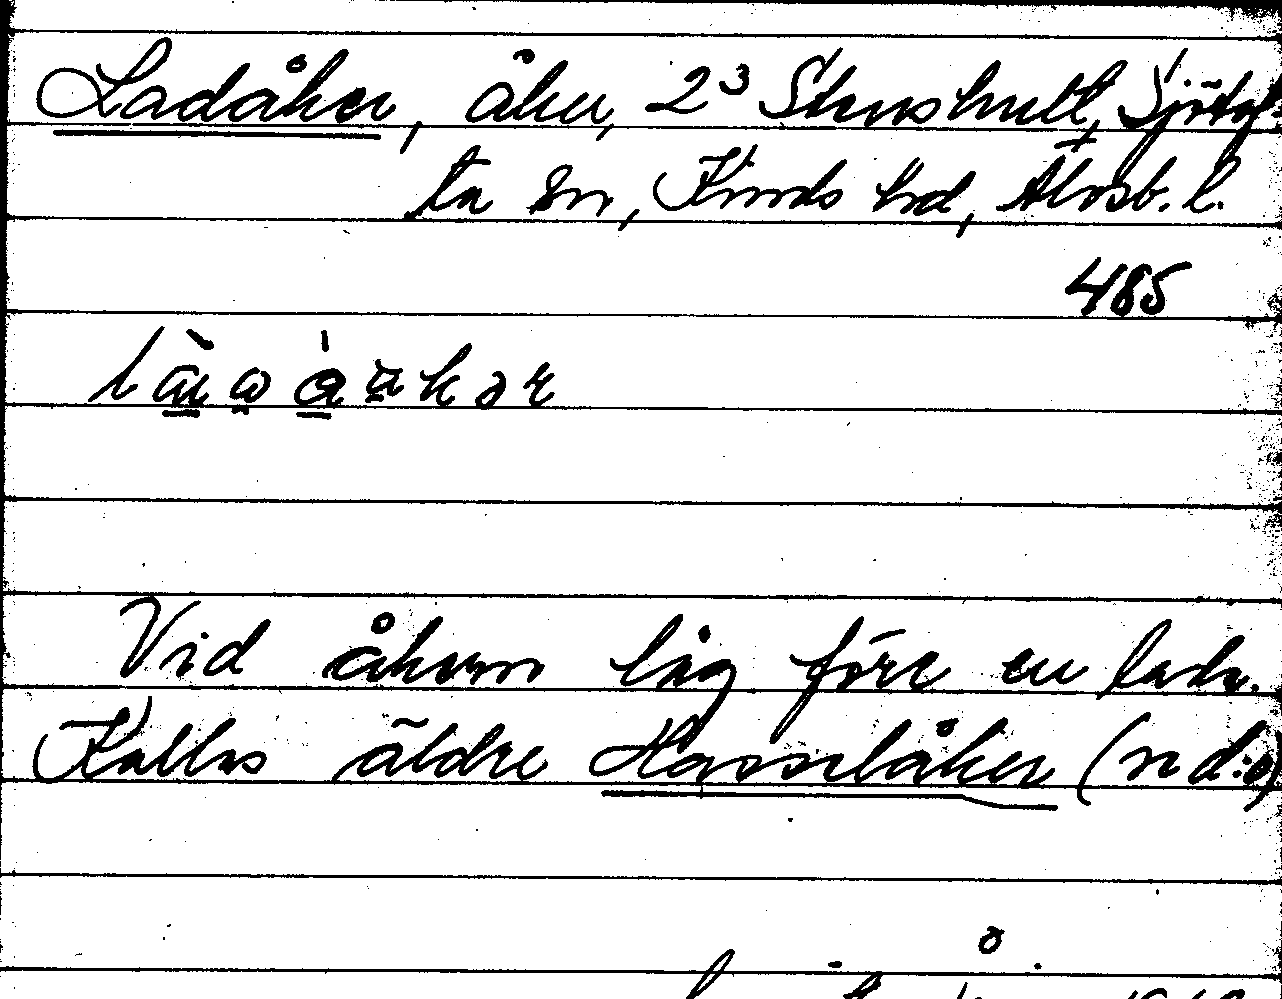 Ladåker, åker, 2³ Stenshult, Sjötof-
ta sn, Kinds hd, Älvsb. l.
485
Vid åkern låg förr en lada.
Kallas äldre Hasselåker (se d:o)